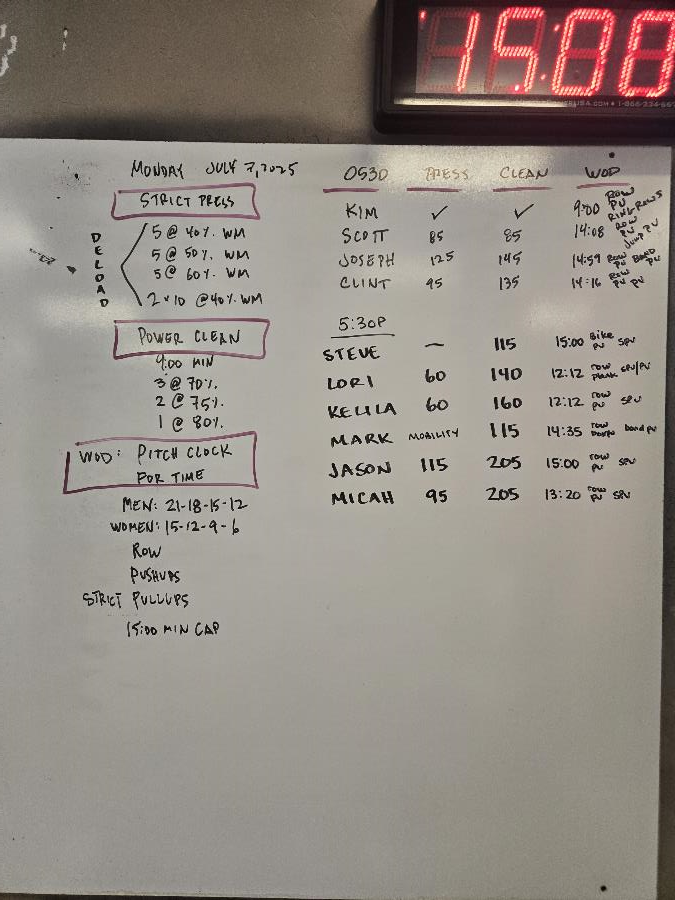 15:00
MONDAY JULY 7, 2025
STRICT PRESS
DELOAD
5 @ 40% WM
5 @ 50% WM
5 @ 60% WM
2x10 @ 40% WM
POWER CLEAN
9:00 MIN
3 @ 70%
2 @ 75%
1 @ 80%
WOD: PITCH CLOCK
FOR TIME
MEN: 21-18-15-12
WOMEN: 15-12-9-6
ROW
PUSHUPS
STRICT PULLUPS
15:00 MIN CAP
0530 PRESS CLEAN WOD
KIM ✓ ✓ 9:00 ROW PU RING ROWS
SCOTT 85 85 14:08 ROW PU JUMP PU
JOSEPH 125 145 14:59 ROW PU BAND PU
CLINT 95 135 14:16 ROW PU PU
5:30P
STEVE — 115 15:00 Bike PU SPU
LORI 60 140 12:12 row plank SPU/PU
KELILA 60 160 12:12 row PU SPU
MARK MOBILITY 115 14:35 row band PU
JASON 115 205 15:00 row PU SPU
MICAH 95 205 13:20 row PU SPU